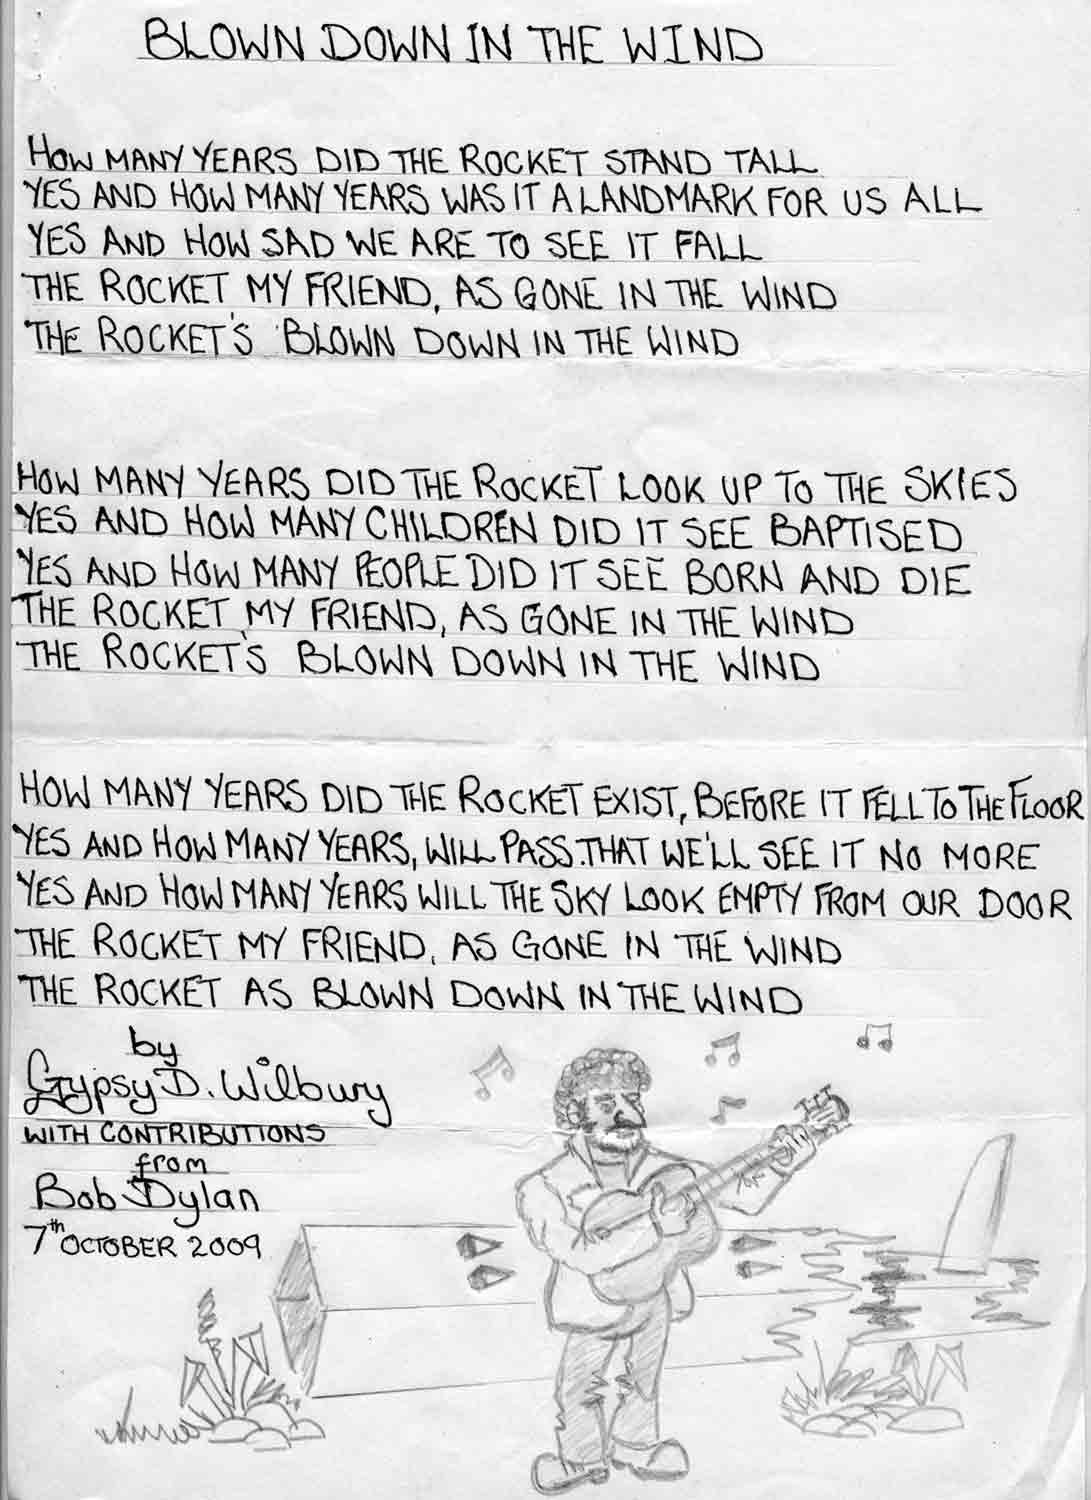 BLOWN DOWN IN THE WIND
HOW MANY YEARS DID THE ROCKET STAND TALL
YES AND HOW MANY YEARS WAS IT A LANDMARK FOR US ALL
YES AND HOW SAD WE ARE TO SEE IT FALL
THE ROCKET MY FRIEND, AS GONE IN THE WIND
THE ROCKET'S BLOWN DOWN IN THE WIND
HOW MANY YEARS DID THE ROCKET LOOK UP TO THE SKIES
YES AND HOW MANY CHILDREN DID IT SEE BAPTISED
YES AND HOW MANY PEOPLE DID IT SEE BORN AND DIE
THE ROCKET MY FRIEND, AS GONE IN THE WIND
THE ROCKET'S BLOWN DOWN IN THE WIND
HOW MANY YEARS DID THE ROCKET EXIST, BEFORE IT FELL TO THE FLOOR
YES AND HOW MANY YEARS, WILL PASS. THAT WE'LL SEE IT NO MORE
YES AND HOW MANY YEARS WILL THE SKY LOOK EMPTY FROM OUR DOOR
THE ROCKET MY FRIEND, AS GONE IN THE WIND
THE ROCKET AS BLOWN DOWN IN THE WIND
by
Gypsy D. Wilbury
WITH CONTRIBUTIONS
from
Bob Dylan
7th OCTOBER 2009